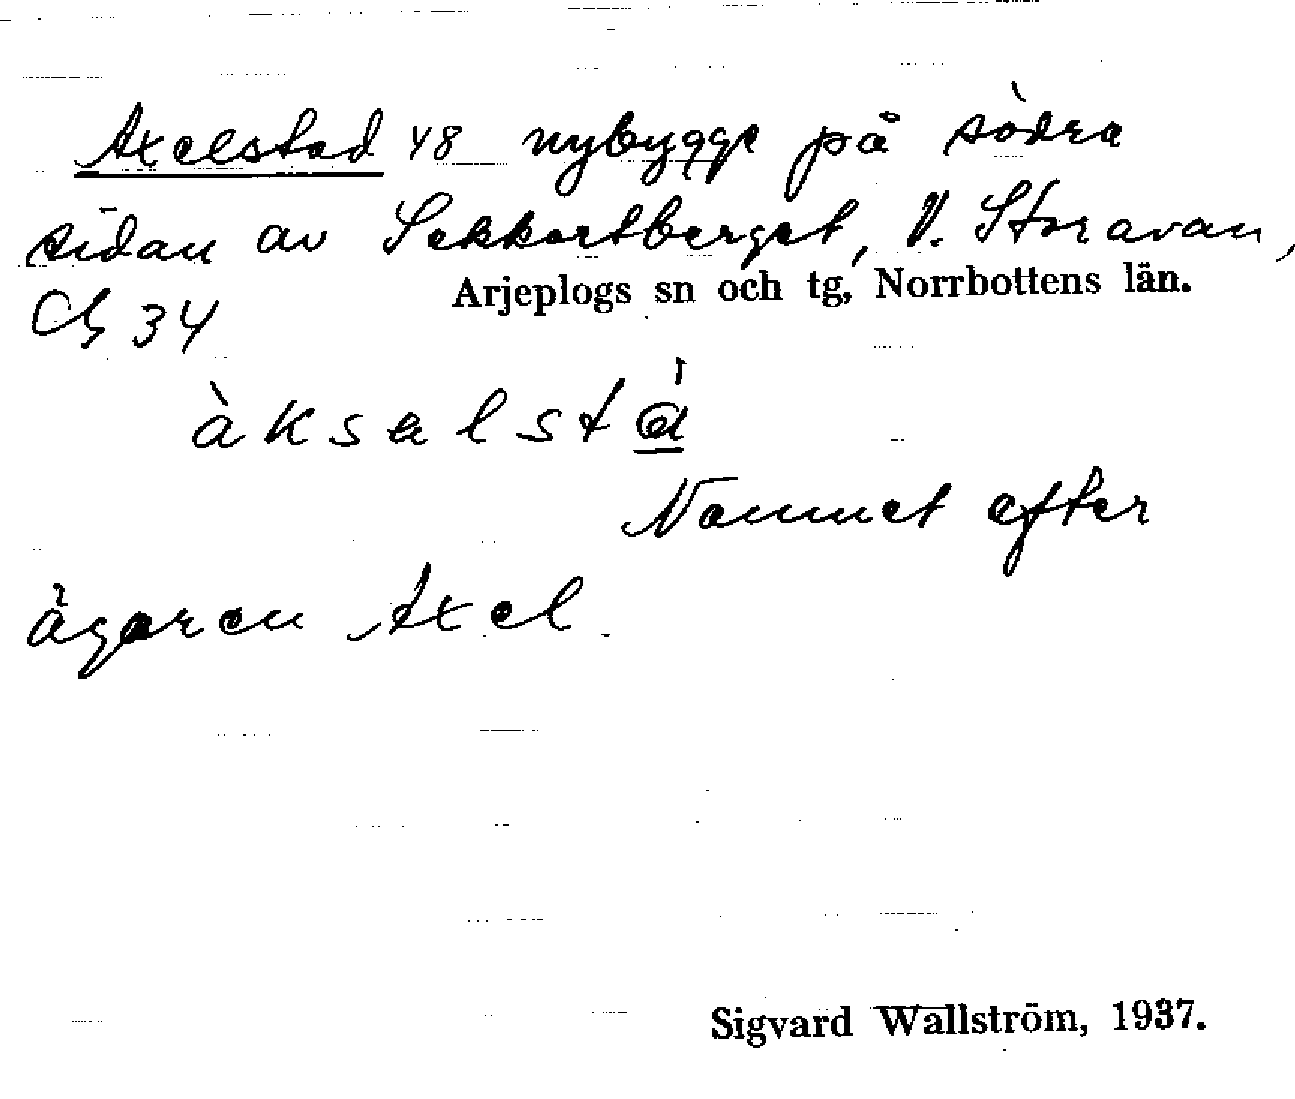 Axelstad 48 nybygge på södra
sidan av Sekkartberget, V. Storavan,
Arjeplogs sn och tg, Norrbottens län.
34
àksalstà
Namnet efter
ägaren Axel.
Sigvard Wallström, 1937.